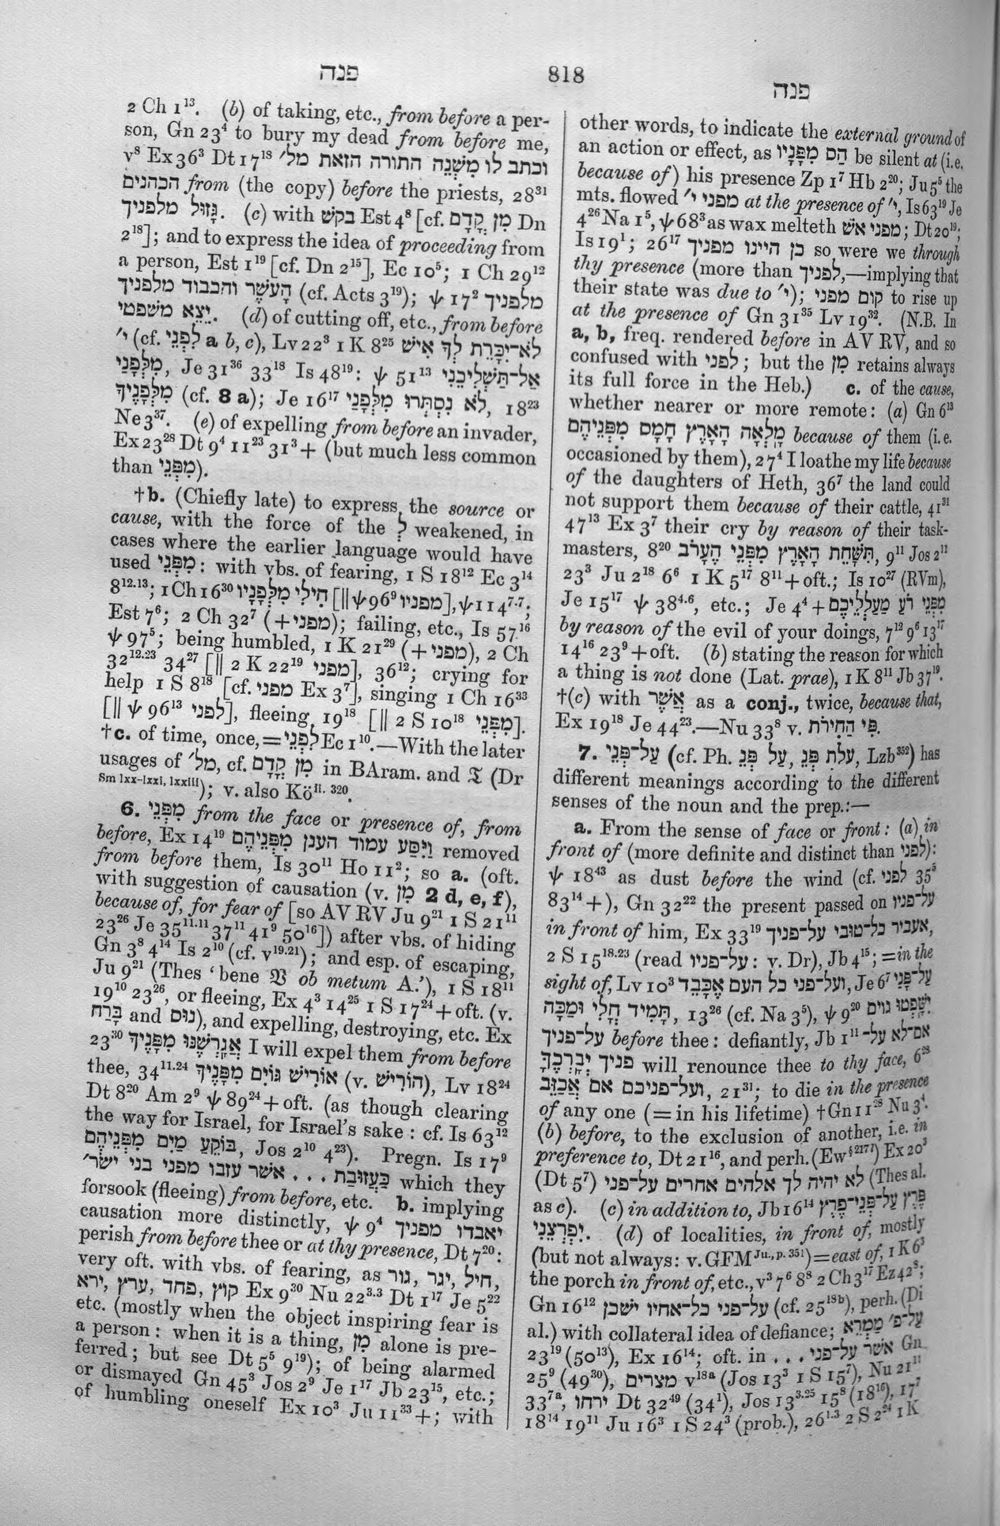 פנה
818
פנה
2 Ch 1¹³. (b) of taking, etc., from before a per-
son, Gn 23⁴ to bury my dead from before me,
v⁸ Ex 36³ Dt 17¹⁸ וכתב לו מִשְׁנֵה התורה הזאת מל׳
הכהנים from (the copy) before the priests, 28³¹
גָּזוּל מלפניך. (c) with בקשׁ Est 4⁸ [cf. מִן קֳדָם Dn
2¹⁸]; and to express the idea of proceeding from
a person, Est 1¹⁹ [cf. Dn 2¹⁵], Ec 10⁵; 1 Ch 29¹²
הָעֹשֶׁר והכבוד מלפניך (cf. Acts 3¹⁹); ψ 17² מלפניך
משפטי יֵצֵא. (d) of cutting off, etc., from before
׳י (cf. לִפְנֵי a b, e), Lv 22³ 1 K 8²⁵ לֹא־יִכָּרֵת לְךָ אִישׁ
מִלְּפָנַי, Je 31³⁶ 33¹⁸ Is 48¹⁹: ψ 51¹³ אַל־תַּשְׁלִיכֵנִי
מִלְּפָנֶיךָ (cf. 8 a); Je 16¹⁷ לֹא נִסְתְּרוּ מִלְּפָנַי, 18²³
Ne 3³⁷. (e) of expelling from before an invader,
Ex 23²⁸ Dt 9⁴ 11²³ 31³ + (but much less common
than מִפְּנֵי).
†b. (Chiefly late) to express the source or
cause, with the force of the לְ weakened, in
cases where the earlier language would have
used מִפְּנֵי: with vbs. of fearing, 1 S 18¹² Ec 3¹⁴
8¹²·¹³; 1 Ch 16³⁰ חִילִי מִלְּפָנָיו [‖ ψ 96⁹ מפניו], ψ 114⁷·⁷;
Est 7⁶; 2 Ch 32⁷ (+ מפני); failing, etc., Is 57¹⁶
ψ 97⁵; being humbled, 1 K 21²⁹ (+ מפני), 2 Ch
32¹²·²³ 34²⁷ [‖ 2 K 22¹⁹ מפני], 36¹²; crying for
help 1 S 8¹⁸ [cf. מפני Ex 3⁷], singing 1 Ch 16³³
[‖ ψ 96¹³ לפני], fleeing 19¹⁸ [‖ 2 S 10¹⁸ מִפְּנֵי].
†c. of time, once, = לִפְנֵי Ec 1¹⁰.—With the later
usages of מל׳, cf. מִן קֳדָם in BAram. and 𝔗 (Dr
Sm lxx–lxxi, lxxiii); v. also Köⁱⁱ· ³²⁰.
6. מִפְּנֵי from the face or presence of, from
before, Ex 14¹⁹ וַיִּסַּע עמוד הענן מִפְּנֵיהֶם removed
from before them, Is 30¹¹ Ho 11²; so a. (oft.
with suggestion of causation (v. מִן 2 d, e, f),
because of, for fear of [so AV RV Ju 9²¹ 1 S 21¹¹
23²⁶ Je 35¹¹·¹¹ 37¹¹ 41⁹ 50¹⁶]) after vbs. of hiding
Gn 3⁸ 4¹⁴ Is 2¹⁰ (cf. v¹⁹·²¹); and esp. of escaping,
Ju 9²¹ (Thes ‘bene 𝔙 ob metum A.’), 1 S 18¹¹
19¹⁰ 23²⁶, or fleeing, Ex 4³ 14²⁵ 1 S 17²⁴ + oft. (v.
נוּס and בָּרַח), and expelling, destroying, etc. Ex
23³⁰ אֲגָרְשֶׁנּוּ מִפָּנֶיךָ I will expel them from before
thee, 34¹¹·²⁴ אוֹרִישׁ גּוֹיִם מִפָּנֶיךָ (v. הוֹרִישׁ), Lv 18²⁴
Dt 8²⁰ Am 2⁹ ψ 89²⁴ + oft. (as though clearing
the way for Israel, for Israel’s sake: cf. Is 63¹²
בּוֹקֵעַ מַיִם מִפְּנֵיהֶם, Jos 2¹⁰ 4²³). Pregn. Is 17⁹
כַּעֲזוּבַת . . . אשר עזבו מפני בני ישר׳ which they
forsook (fleeing) from before, etc. b. implying
causation more distinctly, ψ 9⁴ יאבדו מפניך
perish from before thee or at thy presence, Dt 7²⁰:
very oft. with vbs. of fearing, as חיל, יגר, גור,
ירא, ערץ, פחד, קוץ Ex 9³⁰ Nu 22³·³ Dt 1¹⁷ Je 5²²
etc. (mostly when the object inspiring fear is
a person: when it is a thing, מִן alone is pre-
ferred; but see Dt 5⁵ 9¹⁹); of being alarmed
or dismayed Gn 45³ Jos 2⁹ Je 1¹⁷ Jb 23¹⁵, etc.;
of humbling oneself Ex 10³ Ju 11³³ +; with
other words, to indicate the external ground of
an action or effect, as הַס מִפָּנָיו be silent at (i.e.
because of) his presence Zp 1⁷ Hb 2²⁰; Ju 5⁵ the
mts. flowed מפני י׳ at the presence of ׳י, Is 63¹⁹ Je
4²⁶ Na 1⁵, ψ 68³ as wax melteth מפני אש; Dt 20¹⁹;
Is 19¹; 26¹⁷ כן היינו מפניך so were we through
thy presence (more than לפניך,—implying that
their state was due to ׳י); קום מפני to rise up
at the presence of Gn 31³⁵ Lv 19³². (N.B. In
a, b, freq. rendered before in AV RV, and so
confused with לפני; but the מִן retains always
its full force in the Heb.) c. of the cause,
whether nearer or more remote: (a) Gn 6¹³
מָלְאָה הָאָרֶץ חָמָס מִפְּנֵיהֶם because of them (i.e.
occasioned by them), 27⁴ I loathe my life because
of the daughters of Heth, 36⁷ the land could
not support them because of their cattle, 41³¹
47¹³ Ex 3⁷ their cry by reason of their task-
masters, 8²⁰ תִּשָּׁחֵת הָאָרֶץ מִפְּנֵי הֶעָרֹב, 9¹¹ Jos 2¹¹
23³ Ju 2¹⁸ 6⁶ 1 K 5¹⁷ 8¹¹ + oft.; Is 10²⁷ (RVm),
Je 15¹⁷ ψ 38⁴·⁶, etc.; Je 4⁴ + מִפְּנֵי רֹעַ מַעַלְלֵיכֶם
by reason of the evil of your doings, 7¹² 9⁶ 13¹⁷
14¹⁶ 23⁹ + oft. (b) stating the reason for which
a thing is not done (Lat. prae), 1 K 8¹¹ Jb 37¹⁹.
†(c) with אֲשֶׁר as a conj., twice, because that,
Ex 19¹⁸ Je 44²³.—Nu 33⁸ v. פִּי הַחִירֹת.
7. עַל־פְּנֵי (cf. Ph. עלת פן, על פן, Lzb³⁵²) has
different meanings according to the different
senses of the noun and the prep.:—
a. From the sense of face or front: (a) in
front of (more definite and distinct than לִפְנֵי):
ψ 18⁴³ as dust before the wind (cf. לפני 35⁵
83¹⁴ +), Gn 32²² the present passed on על־פניו
in front of him, Ex 33¹⁹ אעביר כל־טובי על־פניך,
2 S 15¹⁸·²³ (read על־פניו: v. Dr), Jb 4¹⁵; = in the
sight of, Lv 10³ ועל־פני כל העם אֶכָּבֵד, Je 6⁷ עַל־פָּנַי
תָּמִיד חֳלִי וּמַכָּה, 13²⁶ (cf. Na 3⁵), ψ 9²⁰ יִשָּׁפְטוּ גוים
על־פניך before thee: defiantly, Jb 1¹¹ אם־לא על־
פניך יְבָרְכֶךָּ will renounce thee to thy face, 6²⁸
ועל־פניכם אם אֲכַזֵּב, 21³¹; to die in the presence
of any one (= in his lifetime) †Gn 11²⁸ Nu 3⁴.
(b) before, to the exclusion of another, i.e. in
preference to, Dt 21¹⁶, and perh. (Ew§²¹⁷ˡ) Ex 20³
(Dt 5⁷) לא יהיה לך אלהים אחרים על־פני (Thes al.
as c). (c) in addition to, Jb 16¹⁴ פֶּרֶץ עַל־פְּנֵי־פָרֶץ
יִפְרְצֵנִי. (d) of localities, in front of, mostly
(but not always: v. GFM Ju., p. 351) = east of, 1 K 6³
the porch in front of, etc., v³ 7⁶ 8⁸ 2 Ch 3¹⁷ Ez 42⁸;
Gn 16¹² על־פני כל־אחיו ישכן (cf. 25¹⁸ᵇ), perh. (Di
al.) with collateral idea of defiance; עַל־פ׳ מַמְרֵא
23¹⁹ (50¹³), Ex 16¹⁴; oft. in . . . אשר על־פני Gn
25⁹ (49³⁰), מצרים v¹⁸ᵃ (Jos 13³ 1 S 15⁷), Nu 21¹¹
33⁷ᵃ, ירחו Dt 32⁴⁹ (34¹), Jos 13³·²⁵ 15⁸ (18¹⁶), 17⁷
18¹⁴ 19¹¹ Ju 16³ 1 S 24³ (prob.), 26¹·³ 2 S 2²⁴ 1 K